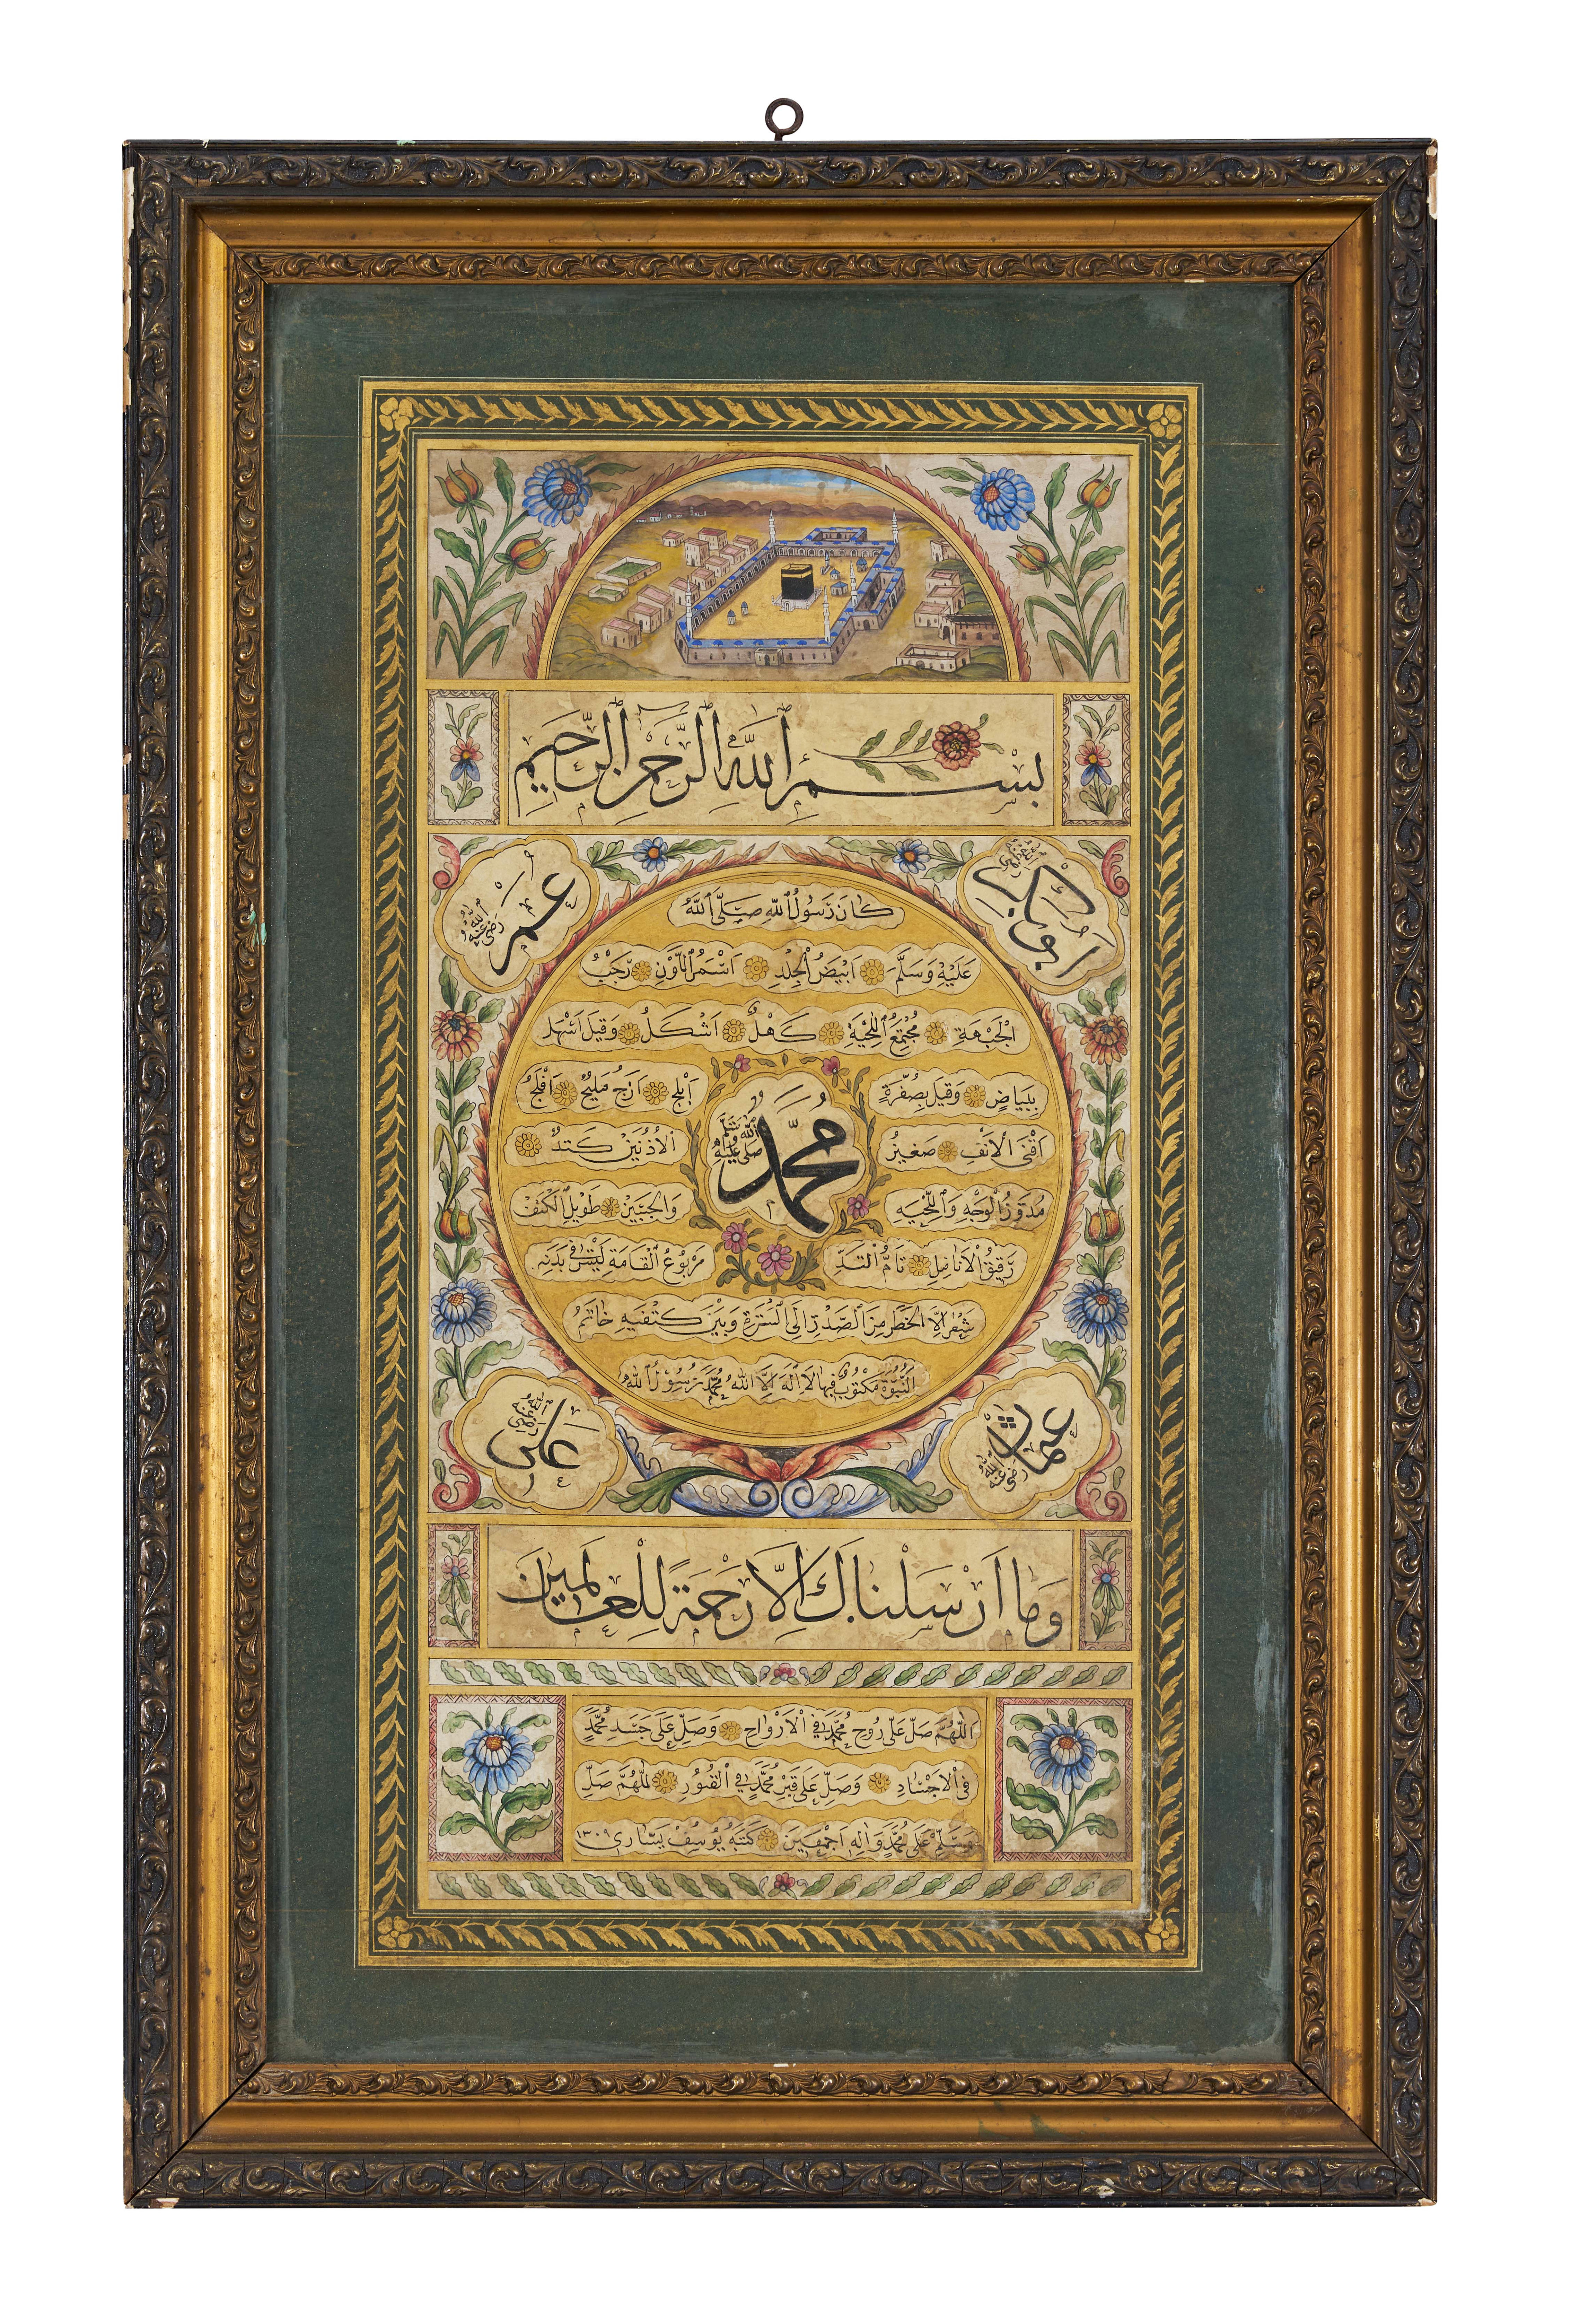 بسم الله الرحمن الرحيم
ابو بكر رضى الله عنه
عمر رضى الله عنه
كان رسول الله صلى الله
عليه وسلم ابيض الجلد اسمر اللون رحب
الجبهة مجتمع اللحية كهل اشكل وقيل اشهل
ببياض وقيل بصفرة ابلج ازج مليح افلج
اقنى الانف صغير الاذنين كتد
محمد صلى الله عليه وسلم
مدور الوجه واللحيه والجبين طويل الكتف
رقيق الانامل تام القد مربوع القامة ليس فى بدنه
شعر الا الخط من الصدر الى السرة وبين كتفيه خاتم
النبوة مكتوب فيها لا اله الا الله محمد رسول الله
عثمان رضى الله عنه
على رضى الله عنه
وما ارسلناك الا رحمة للعالمين
اللهم صل على روح محمد فى الارواح وصل على جسد محمد
فى الاجساد وصل على قبر محمد فى القبور اللهم صل
وسلم على محمد واله اجمعين كتبه يوسف يسارى ١٣٠٩